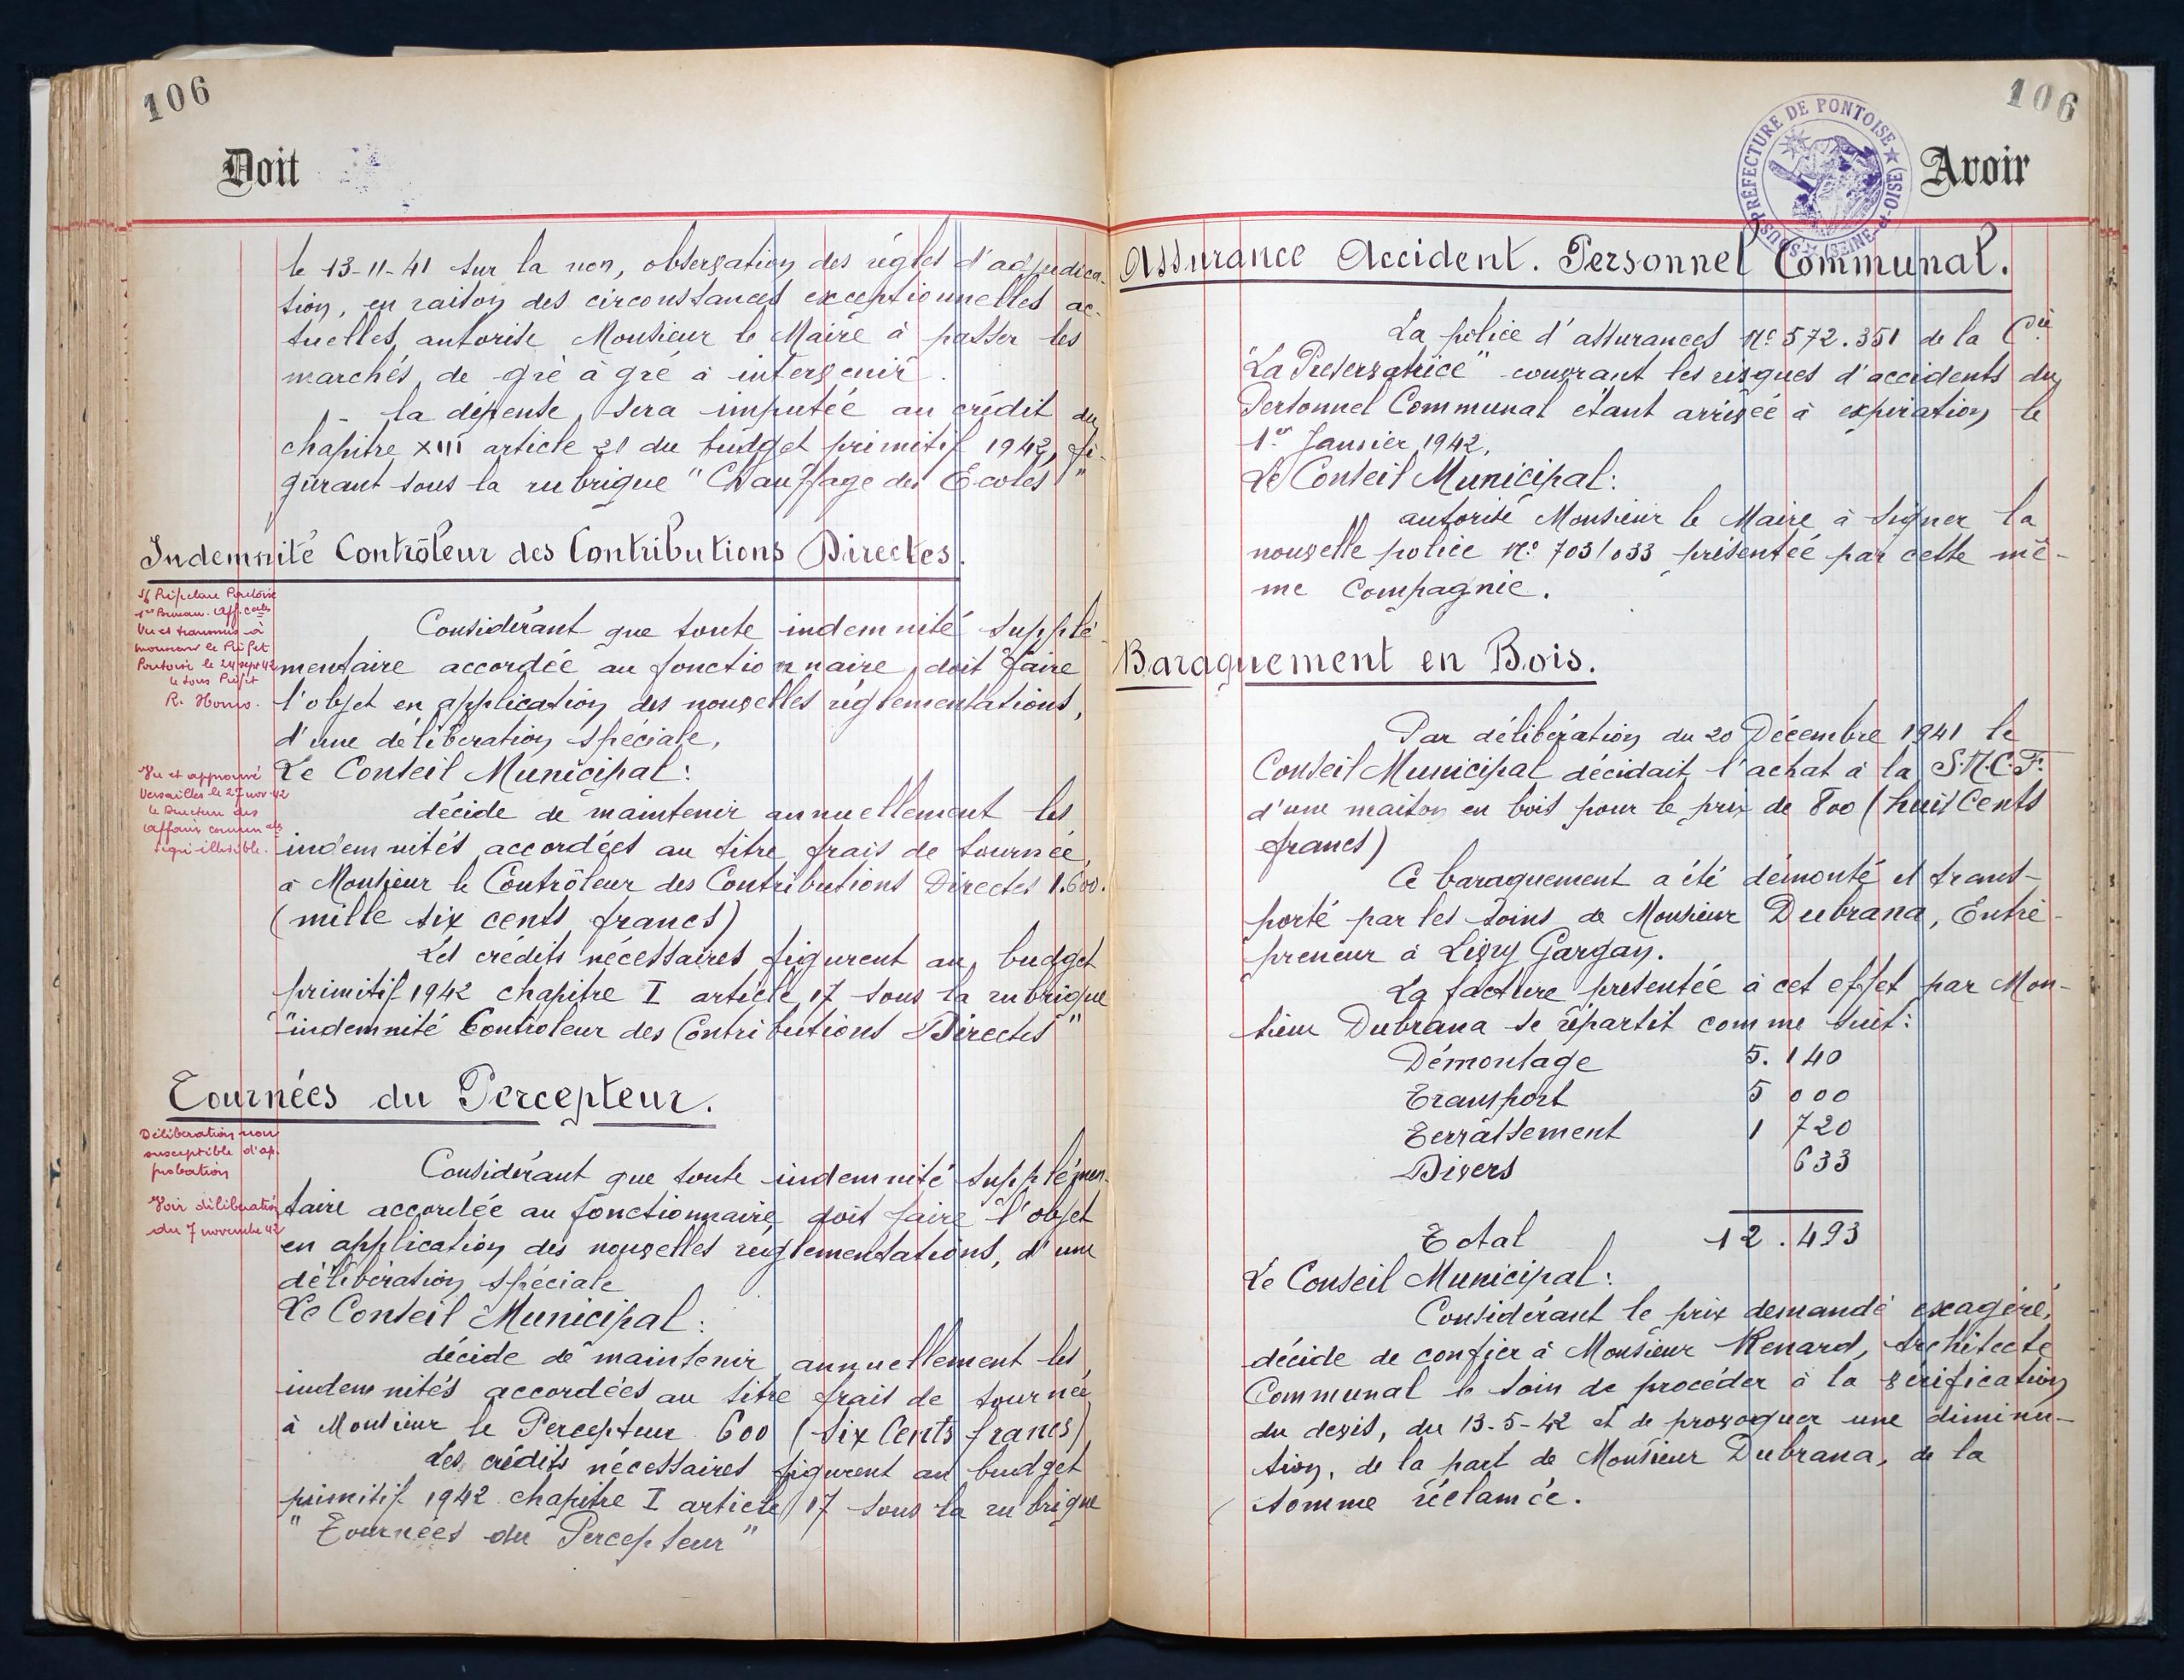 106
Doit
le 13-11-41 sur la non, observation des règles d'adjudica-
tion, en raison des circonstances exceptionnelles ac-
tuelles, autorise Monsieur le Maire à passer les
marchés de gré à gré à intervenir.
la dépense, sera imputée au crédit du
chapitre XIII article 21 du budget primitif 1942, fi-
gurant sous la rubrique "Chauffage des Ecoles"
Indemnité Contrôleur des Contributions Directes.
S/ Préfecture Pontoise
1er Bureau. Aff. cales
Vu et transmis à
monsieur le Préfet
Pontoise le 24 sept 42
le Sous Préfet
R.
Considérant que toute indemnité supplé-
mentaire accordée au fonctionnaire, doit faire
l'objet en application des nouvelles réglementations,
d'une délibération spéciale,
Vu et approuvé
Versailles le 27 nov 42
le Directeur des
affaires commun ales
signé illisible.
Le Conseil Municipal:
décide de maintenir annuellement les
indemnités accordées au titre frais de tournée,
à Monsieur le Contrôleur des Contributions Directes 1.600.
(mille six cents francs)
Les crédits nécessaires figurent au, budget
primitif 1942 chapitre I article 17 sous la rubrique
"indemnité Controleur des Contributions Directes"
Tournées du Percepteur.
Délibération non
susceptible d'ap-
probation
Voir délibération
du 7 novembre 42
Considérant que toute indemnité supplémen-
taire accordée au fonctionnaire, doit faire l'objet
en application des nouvelles réglementations, d'une
délibération spéciale
Le Conseil Municipal:
décide de maintenir annuellement les
indemnités accordées au titre frais de tournée
à Monsieur le Percepteur 600 (six Cents francs)
Les crédits nécessaires figurent au budget
primitif 1942 chapitre I article 17 sous la rubrique
"Tournées du Percepteur"
106
SOUS-PRÉFECTURE DE PONTOISE ★ (SEINE-et-OISE) ★
Avoir
Assurance Accident. Personnel Communal.
La police d'assurances No 572.351 de la Cie
"La Préservatrice" couvrant les risques d'accidents du
Personnel Communal étant arrivée à expiration le
1er Janvier 1942,
Le Conseil Municipal:
autorise Monsieur le Maire à signer la
nouvelle police No 7031033 présentée par cette mê-
me Compagnie.
Baraquement en Bois.
Par délibération du 20 Décembre 1941 le
Conseil Municipal décidait l'achat à la S.N.C.F.
d'une maison en bois pour le prix de 800 (huit Cents
francs)
Ce baraquement a été démonté et trans-
porté par les soins de Monsieur Dubrana, Entre-
preneur à Livry Gargan.
La facture présentée à cet effet par Mon-
sieur Dubrana se répartit comme suit:
Démontage 5.140
Transport 5 000
Terrassement 1 720
Divers 633
Total 12.493
Le Conseil Municipal:
Considérant le prix demandé exagéré,
décide de confier à Monsieur Renard, Architecte
Communal le soin de procéder à la vérification
du devis, du 13-5-42 et de provoquer une diminu-
tion, de la part de Monsieur Dubrana, de la
somme réclamée.